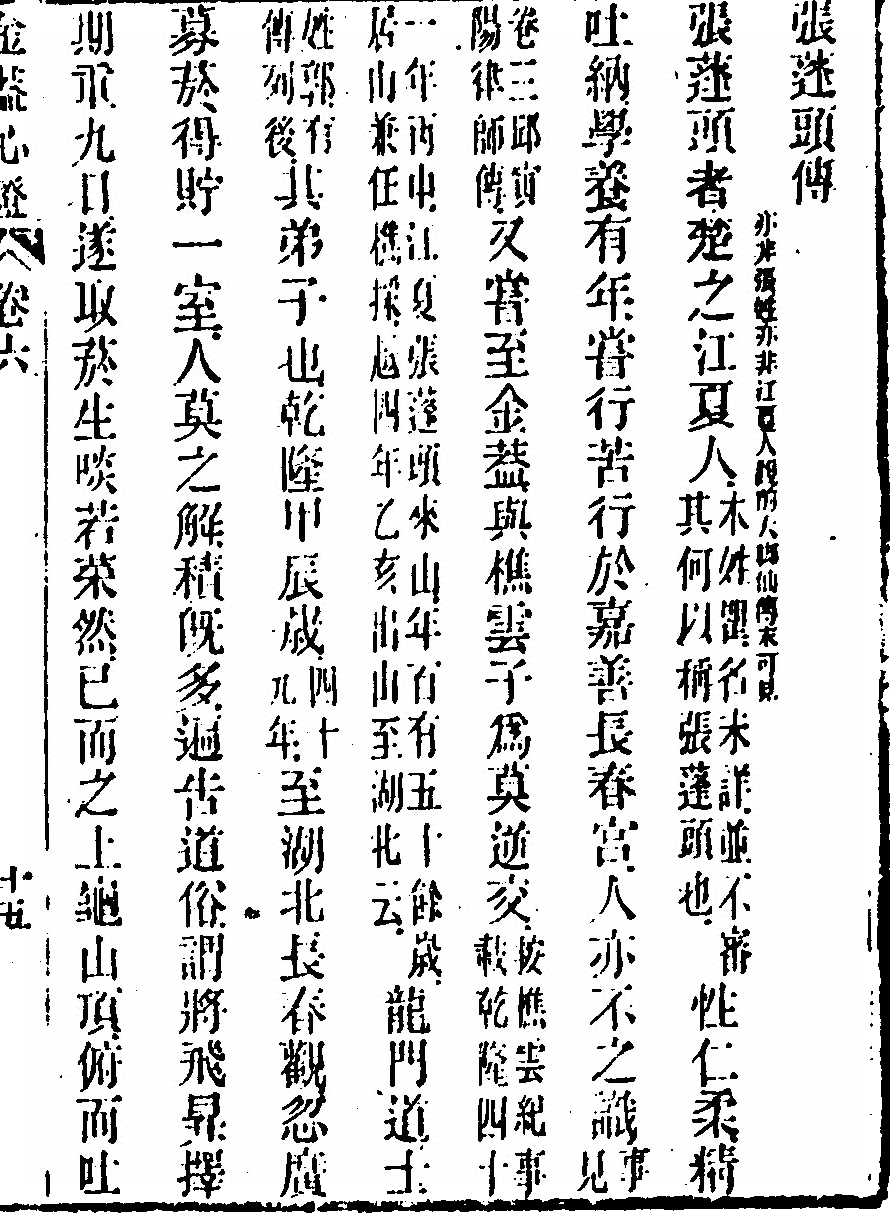 張蓬頭傳 亦非張姓亦非江夏人說閱大師仙傳末可見
張蓬頭者楚之江夏人本姓諱名未詳並不審其何以稱張蓬頭也性仁柔精
吐納學養有年嘗行苦行於嘉善長春宮人亦不之識事見
卷三邱寅陽律師傳又嘗至金葢與樵雲子爲莫逆交按樵雲紀事載乾隆四十
一年丙申江夏張蓬頭來山年百有五十餘歲居山兼任樵採越四年乙亥出山至湖北云龍門道士
姓郭有傳列後其弟子也乾隆甲辰歲四十九年至湖北長春觀忽廣
募菸得貯一室人莫之解積旣多遍告道俗謂將飛昇擇
期重九日遂取菸生啖若菜然已而之上龜山頂俯而吐
金葢心燈 卷六 十五